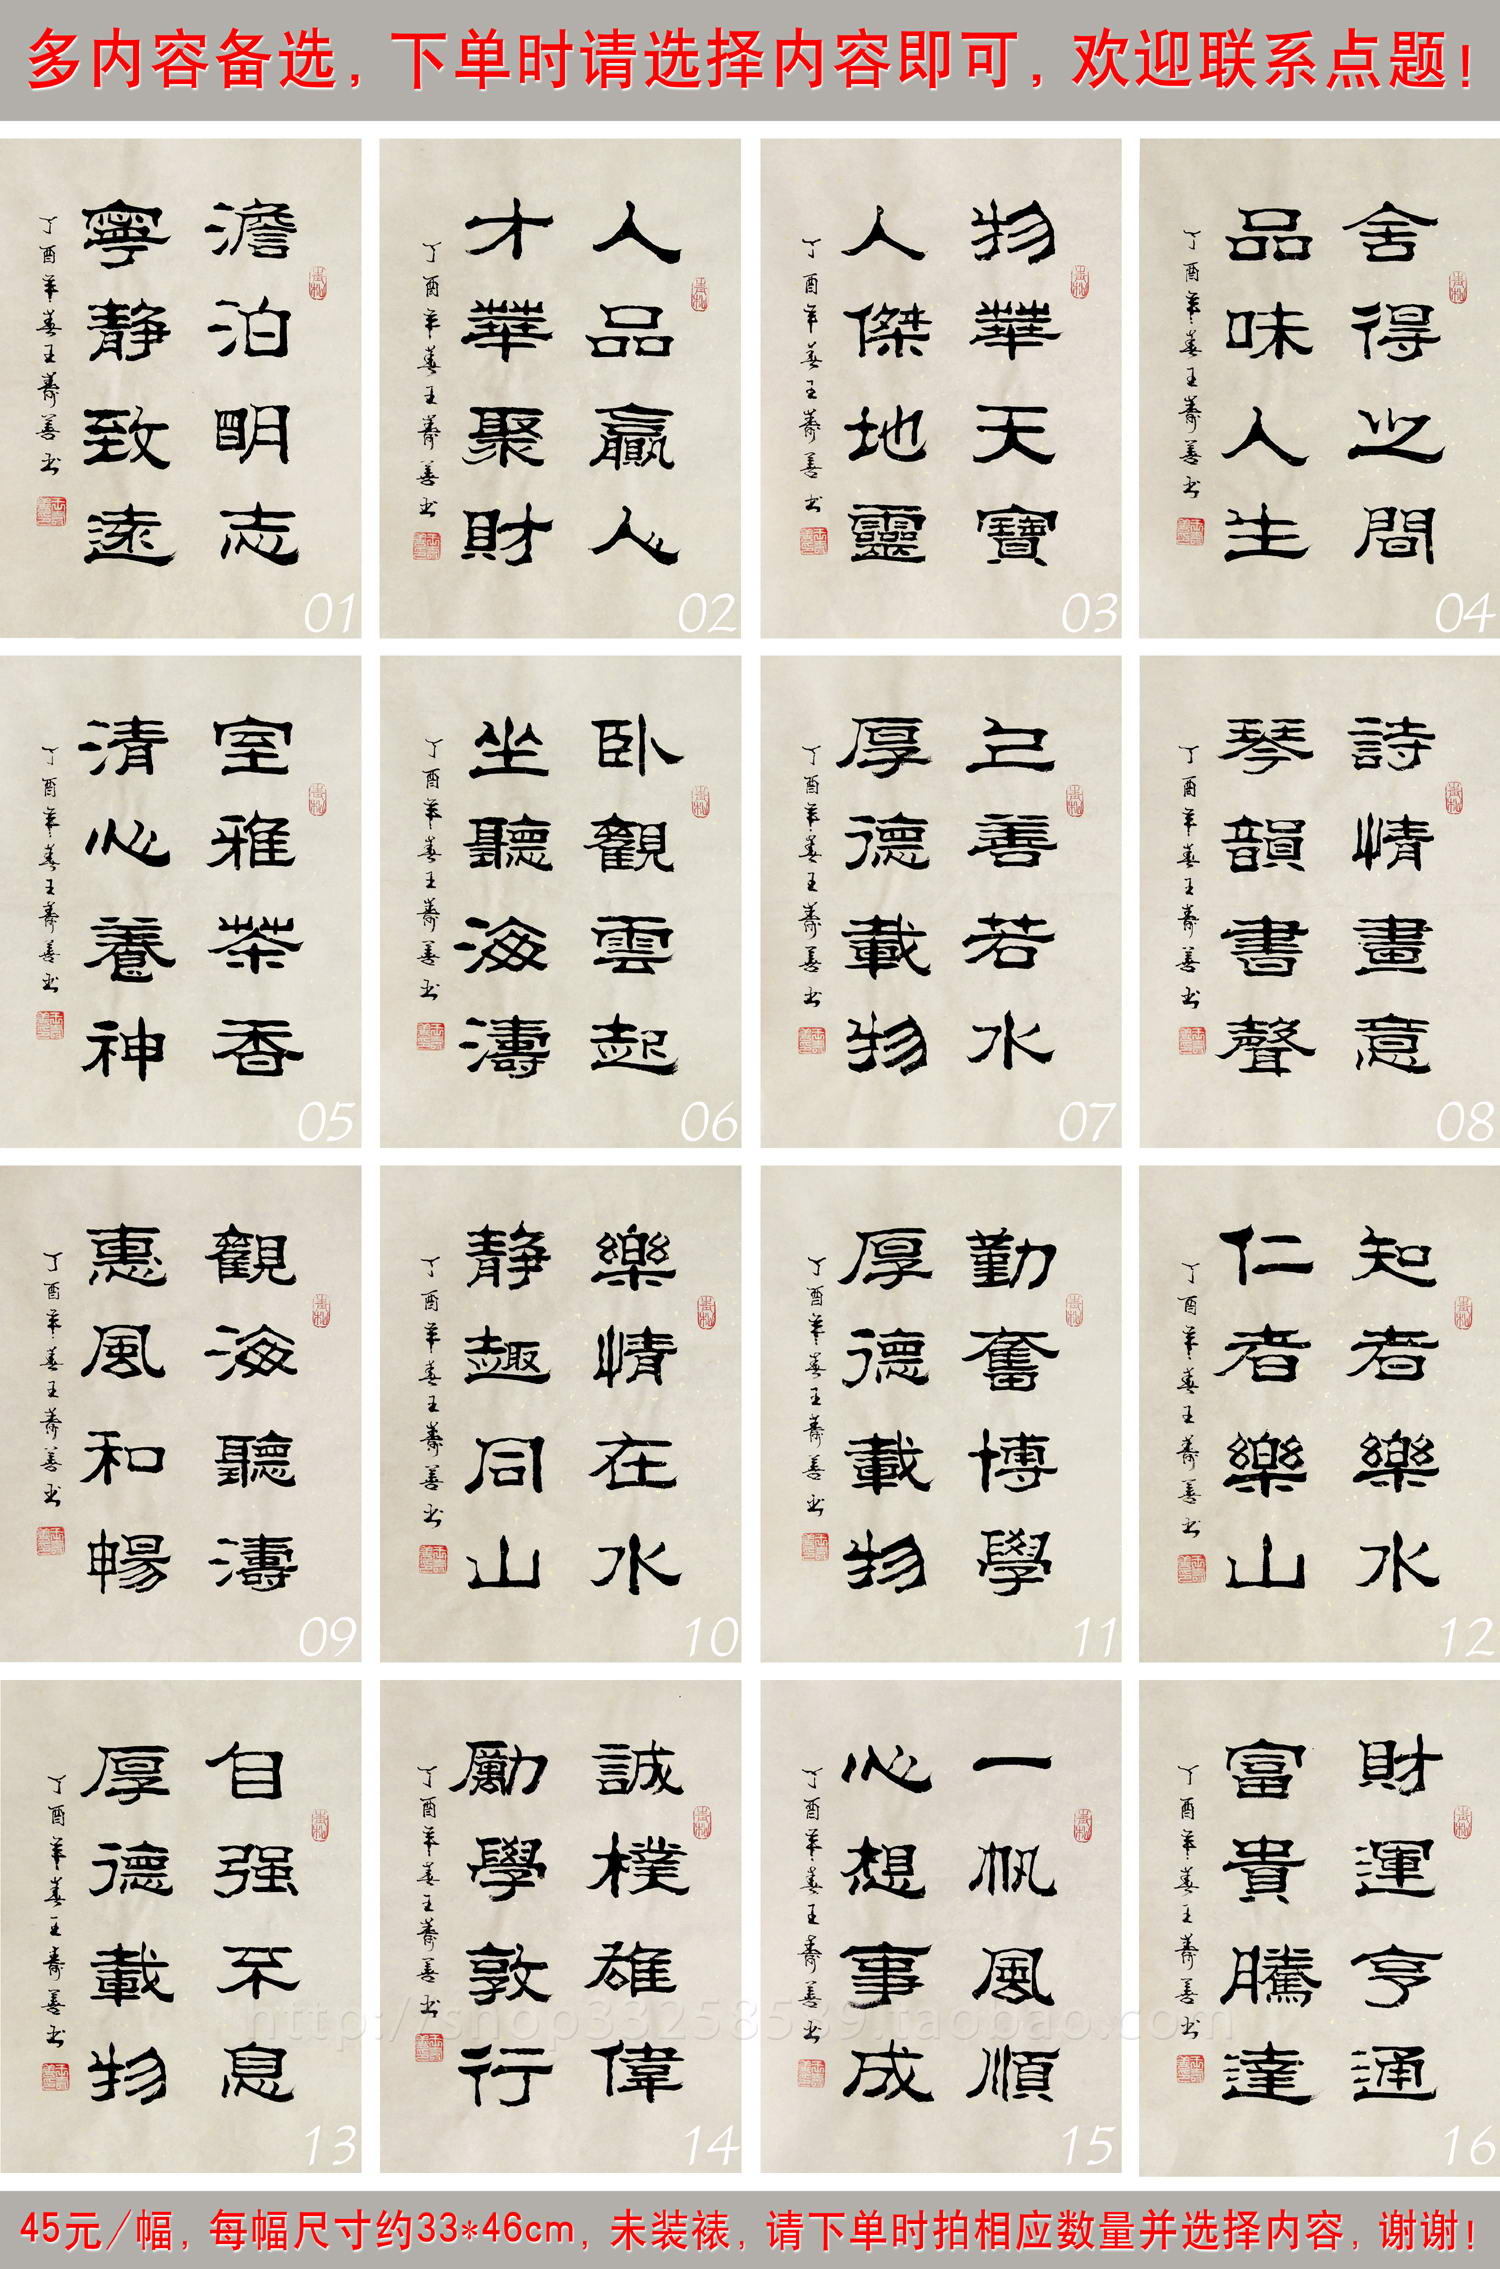 多内容备选，下单时请选择内容即可，欢迎联系点题！
澹泊明志
寧静致遠
丁酉年葽王壽善书
01
人品贏人
才華聚財
丁酉年葽王壽善书
02
物華天寶
人傑地靈
丁酉年葽王壽善书
03
舍得之間
品味人生
丁酉年葽王壽善书
04
室雅茶香
清心養神
丁酉年葽王壽善书
05
卧觀雲起
坐聽海濤
丁酉年葽王壽善书
06
上善若水
厚德載物
丁酉年葽王壽善书
07
詩情畫意
琴韻書聲
丁酉年葽王壽善书
08
觀海聽濤
惠風和暢
丁酉年葽王壽善书
09
樂情在水
静趣同山
丁酉年葽王壽善书
10
勤奮博學
厚德載物
丁酉年葽王壽善书
11
知者樂水
仁者樂山
丁酉年葽王壽善书
12
自强不息
厚德載物
丁酉年葽王壽善书
13
誠樸雄偉
勵學敦行
丁酉年葽王壽善书
14
一帆風順
心想事成
丁酉年葽王壽善书
15
財運亨通
富貴騰達
丁酉年葽王壽善书
16
http://shop33258539.taobao.com
45元/幅，每幅尺寸约33*46cm，未装裱，请下单时拍相应数量并选择内容，谢谢！